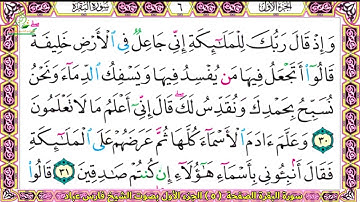 الجزء الأول ٦ سورة البقرة
وَإِذْ قَالَ رَبُّكَ لِلْمَلَٰٓئِكَةِ إِنِّي جَاعِلٌ فِي الْأَرْضِ خَلِيفَةً
قَالُوٓا۟ أَتَجْعَلُ فِيهَا مَن يُفْسِدُ فِيهَا وَيَسْفِكُ الدِّمَآءَ وَنَحْنُ
نُسَبِّحُ بِحَمْدِكَ وَنُقَدِّسُ لَكَ قَالَ إِنِّيٓ أَعْلَمُ مَا لَا تَعْلَمُونَ
٣٠ وَعَلَّمَ ءَادَمَ الْأَسْمَآءَ كُلَّهَا ثُمَّ عَرَضَهُمْ عَلَى الْمَلَٰٓئِكَةِ
فَقَالَ أَنۢبِـُٔونِي بِأَسْمَآءِ هَٰٓؤُلَآءِ إِن كُنتُمْ صَٰدِقِينَ ٣١ قَالُوا۟
سورة البقرة الصفحة (٥) الجزء الأول بصوت الشيخ فارس عباد